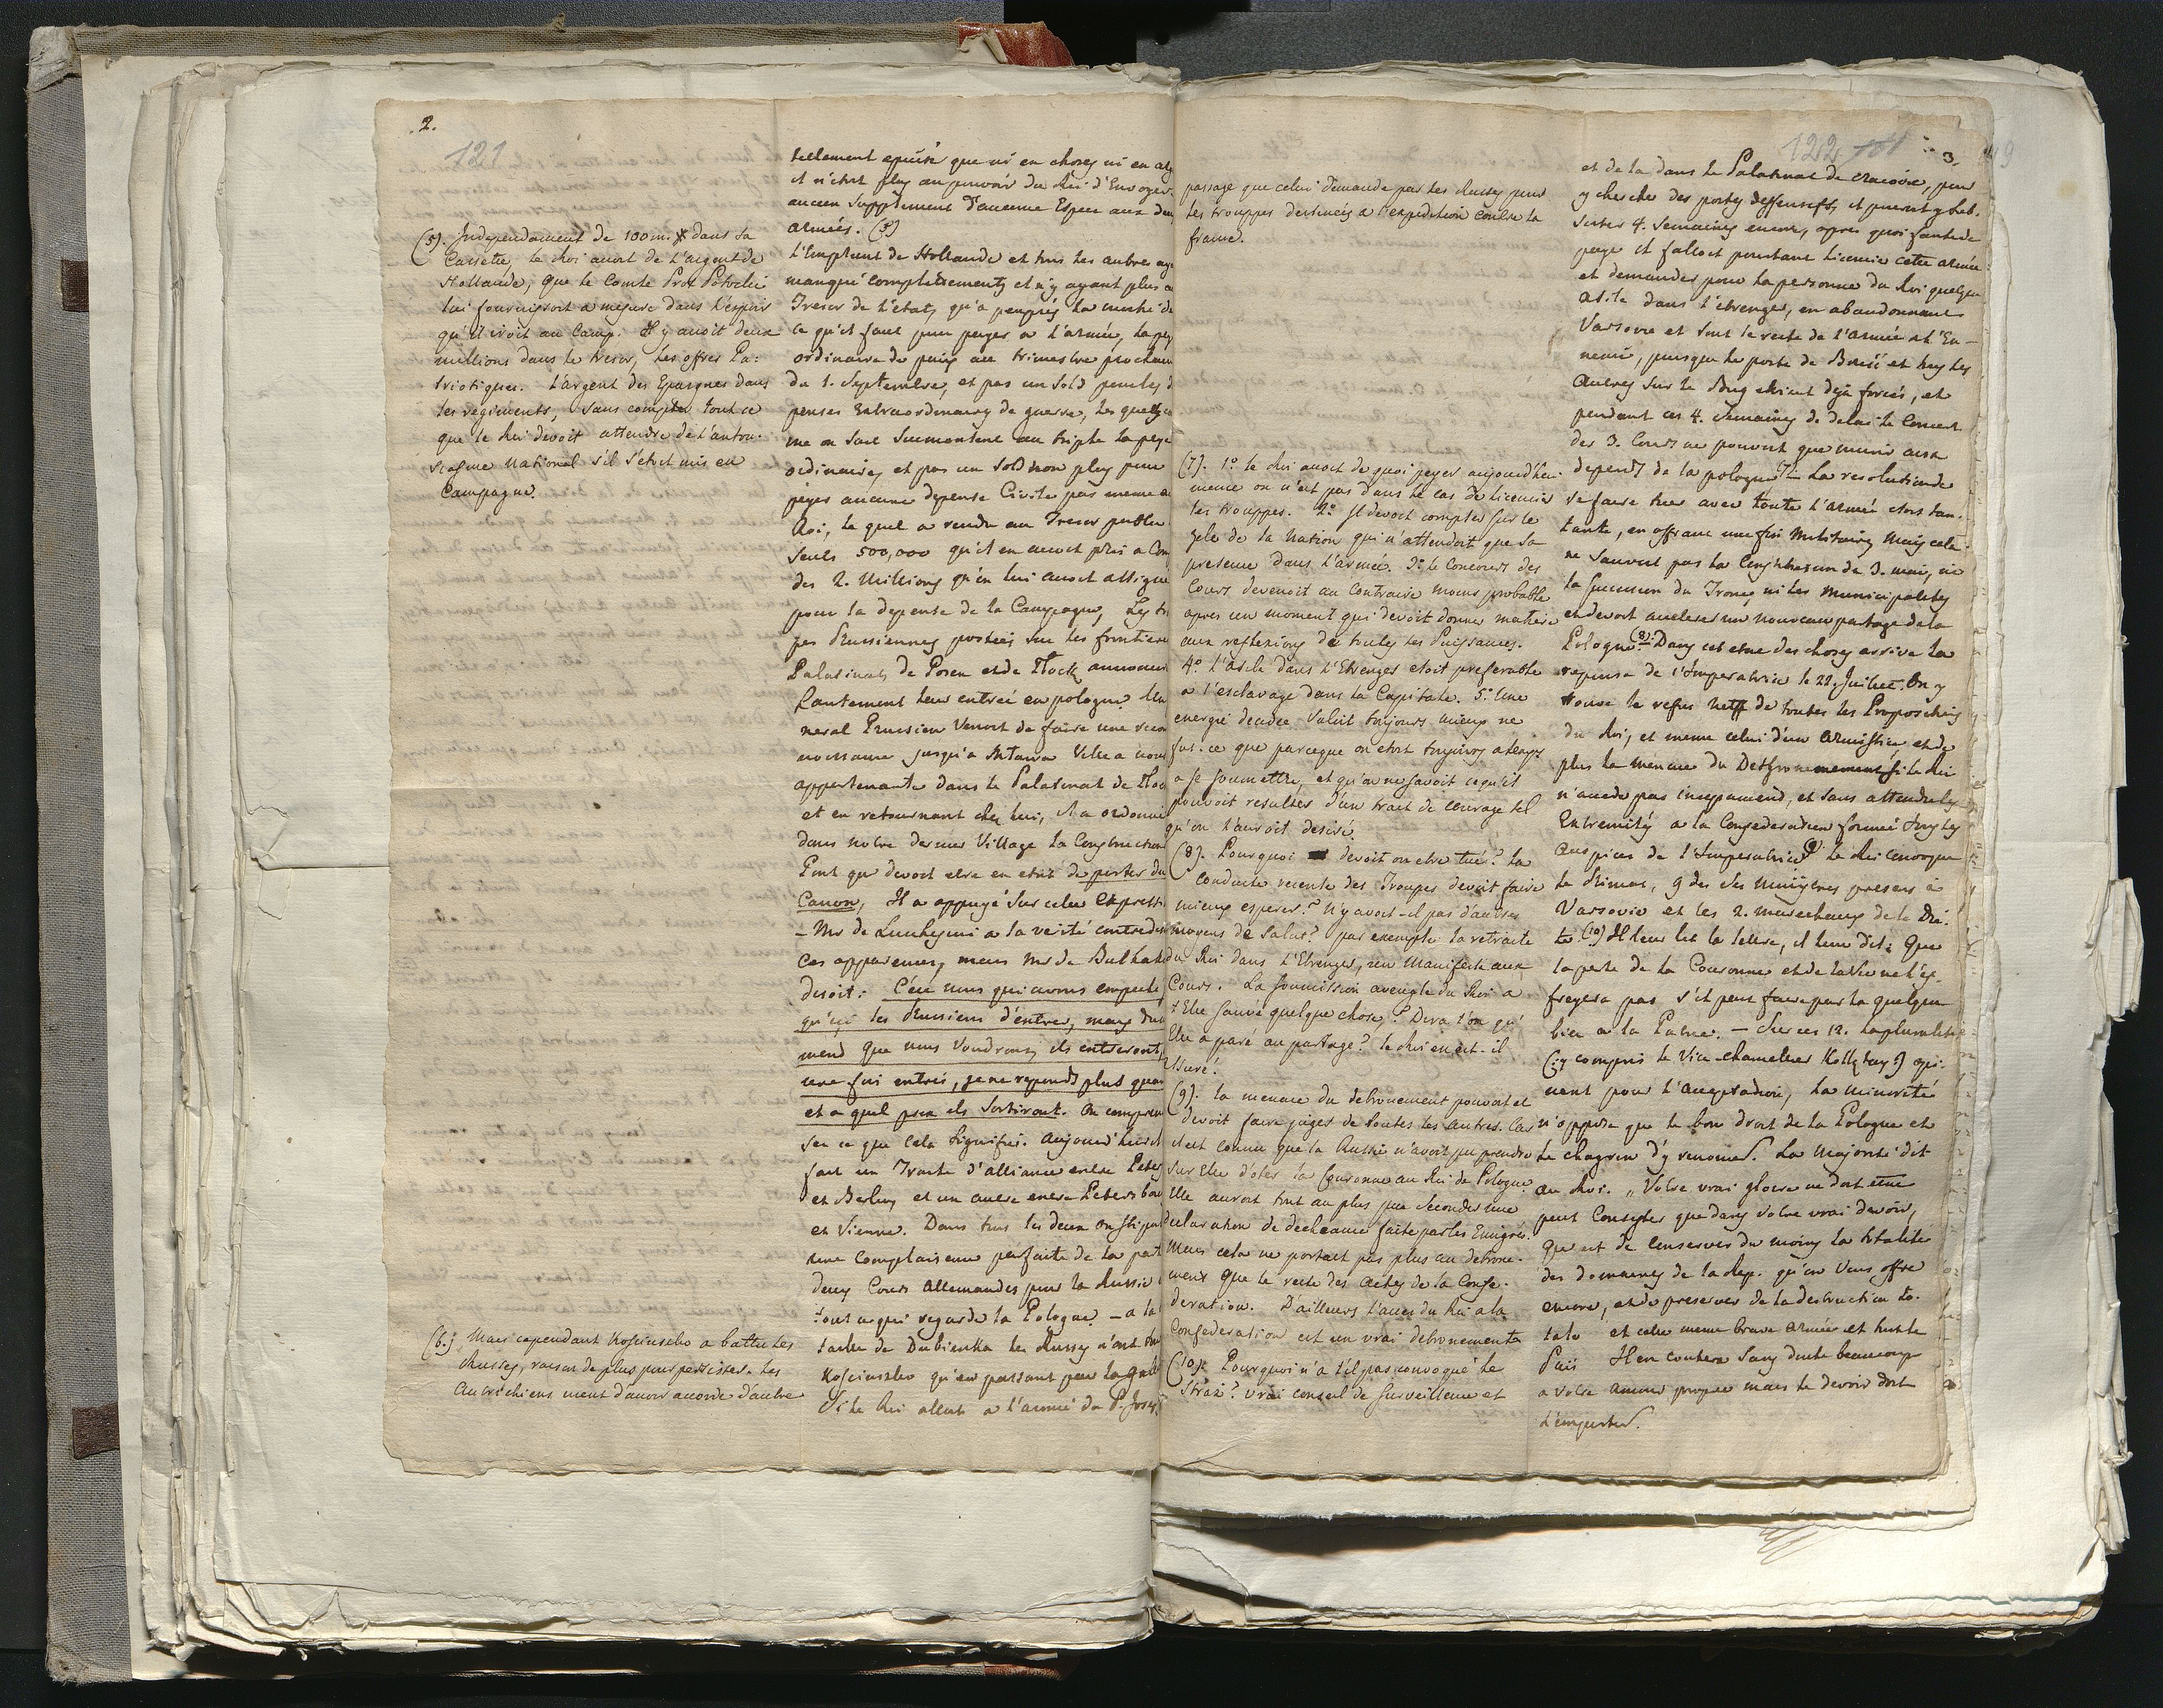 .2.
121
(5). Independament de 100 m. # dans sa
Cassette, le Roi avoit de l'argent de
Hollande, que le Comte Prot Potocki
lui fournissoit a mesure dans l'espoir
qu'il iroit au Camp. Il y avoit deux
millions dans le tresor, les offres Pa:
triotiques. L'argent des Epargnes dans
les regiments, sans compter tout ce
que le Roi devoit attendre de l'antou:
siasme national s'il s'étoit mis en
Campagne.
(6.) Mais cependant Kosciuszko a battu les
Russes, raison de plus pour persister. Les
Autrichiens nient d'avoir accordé d'autre
tellement epuisé que ni en choses ni en
il n'étoit plus au pouvoir du Roi d'Envoyer
aucun Supplement d'aucune Espece aux
armées. (5)
L'Emprunt de Hollande et tous les autres
manqué complettement, et n'y ayant plus au
Tresor de l'état, qu'a peuprés la moitié de
ce qu'il faut pour payer a l'armée, la
ordinaire de paix au trimestre prochain
du 1. Septembre, et pas un sold pour les
penses extraordinaires de guerre, les quelles
me on sait Surmontent au triple la paye
ordinaire, et pas un sold non plus pour
payer aucune depense Civile pas meme au
Roi, le quel a rendu au Tresor public
seuls 500,000 qu'il en avoit pris a
des 2. Millions qu'on lui avoit assigné
pour la depense de la Campagne. Les
pes Prussiennes postées sur les frontieres
Palatinats de Posen et de Plock annoncent
hautement leur entrée en pologne. Un
neral Prussien venoit de faire une
noissance jusqu'a Mlawa Ville a nous
appartenante dans le Palatinat de
et en retournant chez lui, il a ordonné
dans notre dernier Village la Construction
Pont qui devoit etre en etat de porter du
Canon, Il a appuyé sur cette Expression
– Mr de Luchesini a la verité contredit
ces apparences, mais Mr de Bulhakow
disoit: C'est nous qui avons empeché
qu'ici les Prussiens d'entrer, mais du
ment que nous voudrons, ils entreront,
une fois entrés, je ne reponds plus quand
et a quel prix ils sortiront. On comprend
sez ce que cela signifie. Aujourd'hui il
fait un Traité d'alliance entre
et Berlin, et un autre entre Petersbourg
et Vienne. Dans tous les deux on stipule
une complaisance parfaite de la part
deux Cours Allemandes pour la Russie
tout ce qui regarde la Pologne – a la
taille de Dubienka les Russes n'ont
Kosciuszko qu'en passant par la
Si le Roi alloit a l'armée du P. Joseph
122
3.
passage que celui demandé par les Russes pour
les trouppes destinées a l'expedition contre la
france.
(7). 1º. le Roi avoit de quoi payer aujourd'hui
meme on n'est pas dans le cas de licencier
les trouppes. 2º. Il devoit compter sur le
zele de la Nation qui n'attendoit que sa
presence dans l'armée. 3º. le Concours des
Cours devenoit au Contraire moins probable
apres un moment qui devoit donner matiere
aux reflexions de toutes les Puissances.
4º l'asile dans l'Etranger etoit preferable
a l'esclavage dans la Capitale. 5º. Une
energie decidée valoit toujours mieux ne
fut-ce que parceque on etoit toujours a temps
a se soumettre, et qu'on ne savoit ce qu'il
pouvoit resulter d'un trait de courage tel
qu'on l'auroit desiré.
(8). Pourquoi devoit on etre tué? La
conduite recente des Troupes devoit faire
mieux esperer? N'y avoit-il pas d'autres
moyens de salut? par exemple la retraite
du Roi dans l'Etranger, un Manifeste aux
Cours. La soumission aveugle du Roi a
t-Elle sauvé quelque chose? Dira t'on qu'
Elle a paré au partage? le Roi en est-il
assuré?
(9). la menace du detronement pouvoit et
devoit faire juger de toutes les autres. Car
il est connu que la Russie n'avoit pu prendre
sur Elle d'oter la Couronne au Roi de Pologne.
Elle auroit tout au plus pu seconder une
declaration de decheance faite par les Emigrés.
Mais cela ne portait pas plus au detrone-
ment que le reste des actes de la Confe-
deration. D'ailleurs l'accés du Roi a la
Confederation est un vrai detronement.
(10). Pourquoi n'a t'il pas convoqué le
Straż? vrai conseil de surveillance et
et de la dans le Palatinat de Cracovie, pour
y chercher des postes deffensifs, et pouvoit y sub-
sister 4. semaines encore, apres quoi faute de
paye il falloit pourtant licencier cette armée
et demander pour la personne du Roi quelque
asile dans l'étranger, en abandonnant
Varsovie et tout le reste de l'armée a l'En-
nemi, puisque le poste de Brzesć et tous les
autres sur le Bug étoient déja forcés, et
pendant ces 4. semaines de delai le Concert
des 3. Cours ne pouvoit que murir aux
depends de la pologne (7) – La resolution de
se faire tuer avec toute l'armée etoit ten-
tante, en offrant une fin Militaire, mais cela
ne sauvoit pas la Constitution du 3. mai, ni
la succession du Trone, ni les municipalités
et devoit accelerer un nouveau partage de la
Pologne (8). Dans cet etat des choses arrive la
reponse de l'Imperatrice le 22. Juillet. On y
trouve le refus nett de toutes les Propositions
du Roi, et meme celui d'un Armistice, et de
plus la menace du Detronement si le Roi
n'accede pas incessament, et sans attendre les
Extremités a la Confederation formée sous les
auspices de l'Imperatrice (9) Le Roi convoque
le Primat, 9 des ses Ministres presens à
Varsovie et les 2. marechaux de la Dié-
te. (10) Il leur lit la lettre, il leur dit: Que
la perte de la Couronne et de la Vie ne l'ef-
frayera pas s'il peut faire par la quelque
bien a la Patrie. – Sur ces 12. la pluralité
(: y compris le Vice-chancelier Kołłątay :) opi-
nent pour l'acceptation, la minorité
n'oppose que le bon droit de la Pologne et
le chagrin d'y renoncer. La Majorité dit
au Roi. „Votre vrai gloire ne doit et ne
peut consister que dans votre vrai devoir,
qui est de conserver du moins la totalité
des domaines de la Rep. qu'on vous offre
encore, et de preserver de la destruction to-
tale et cette meme brave Armée et tout le
Païs. Il en coutera sans doute beaucoup
a votre amour propre mais le devoir doit
l'emporter.